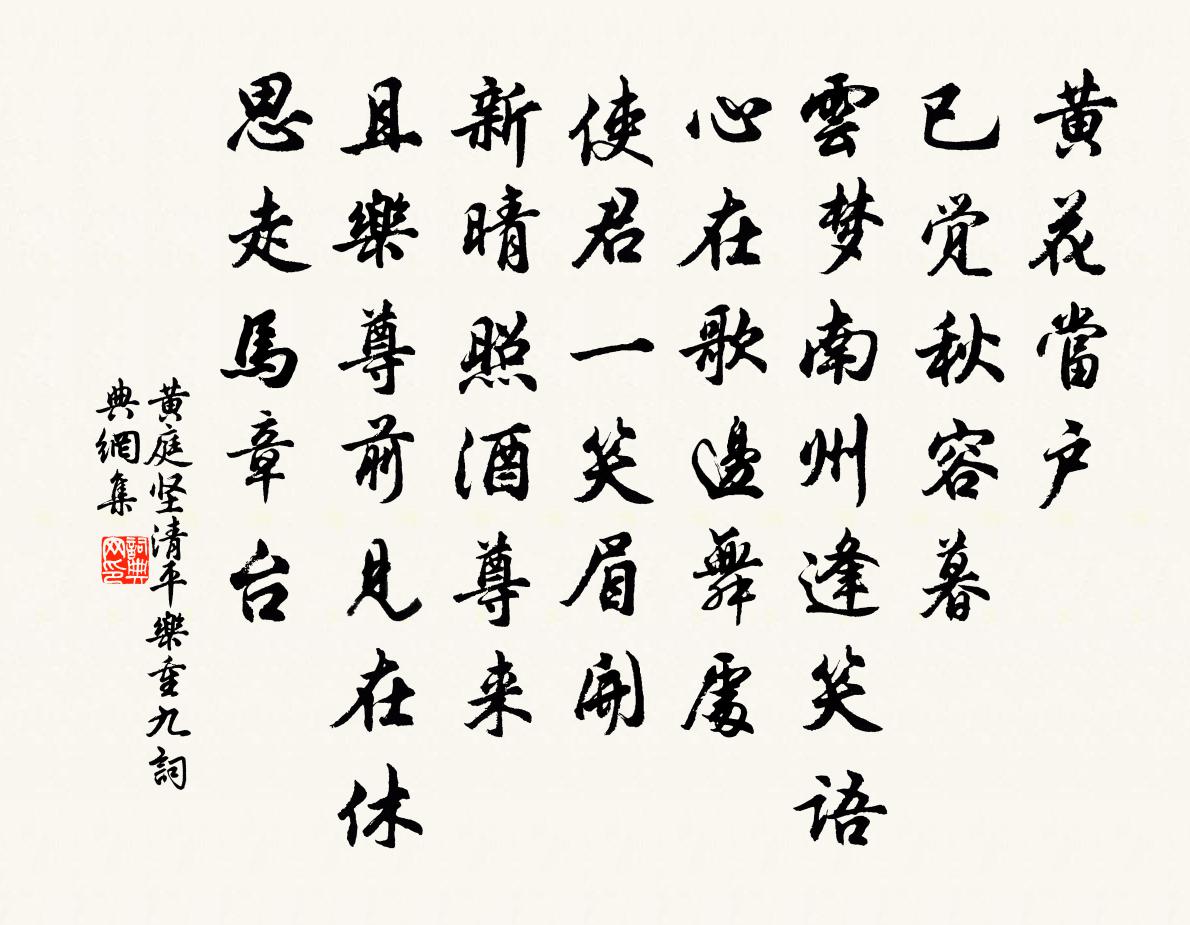 黄花當户
已觉秋容暮
雲梦南州逢笑語
心在歌邊舞處
使君一笑眉開
新晴照酒尊来
且樂尊前見在休
思走馬章台
黄庭坚清平樂重九詞
典網集
詞典网印